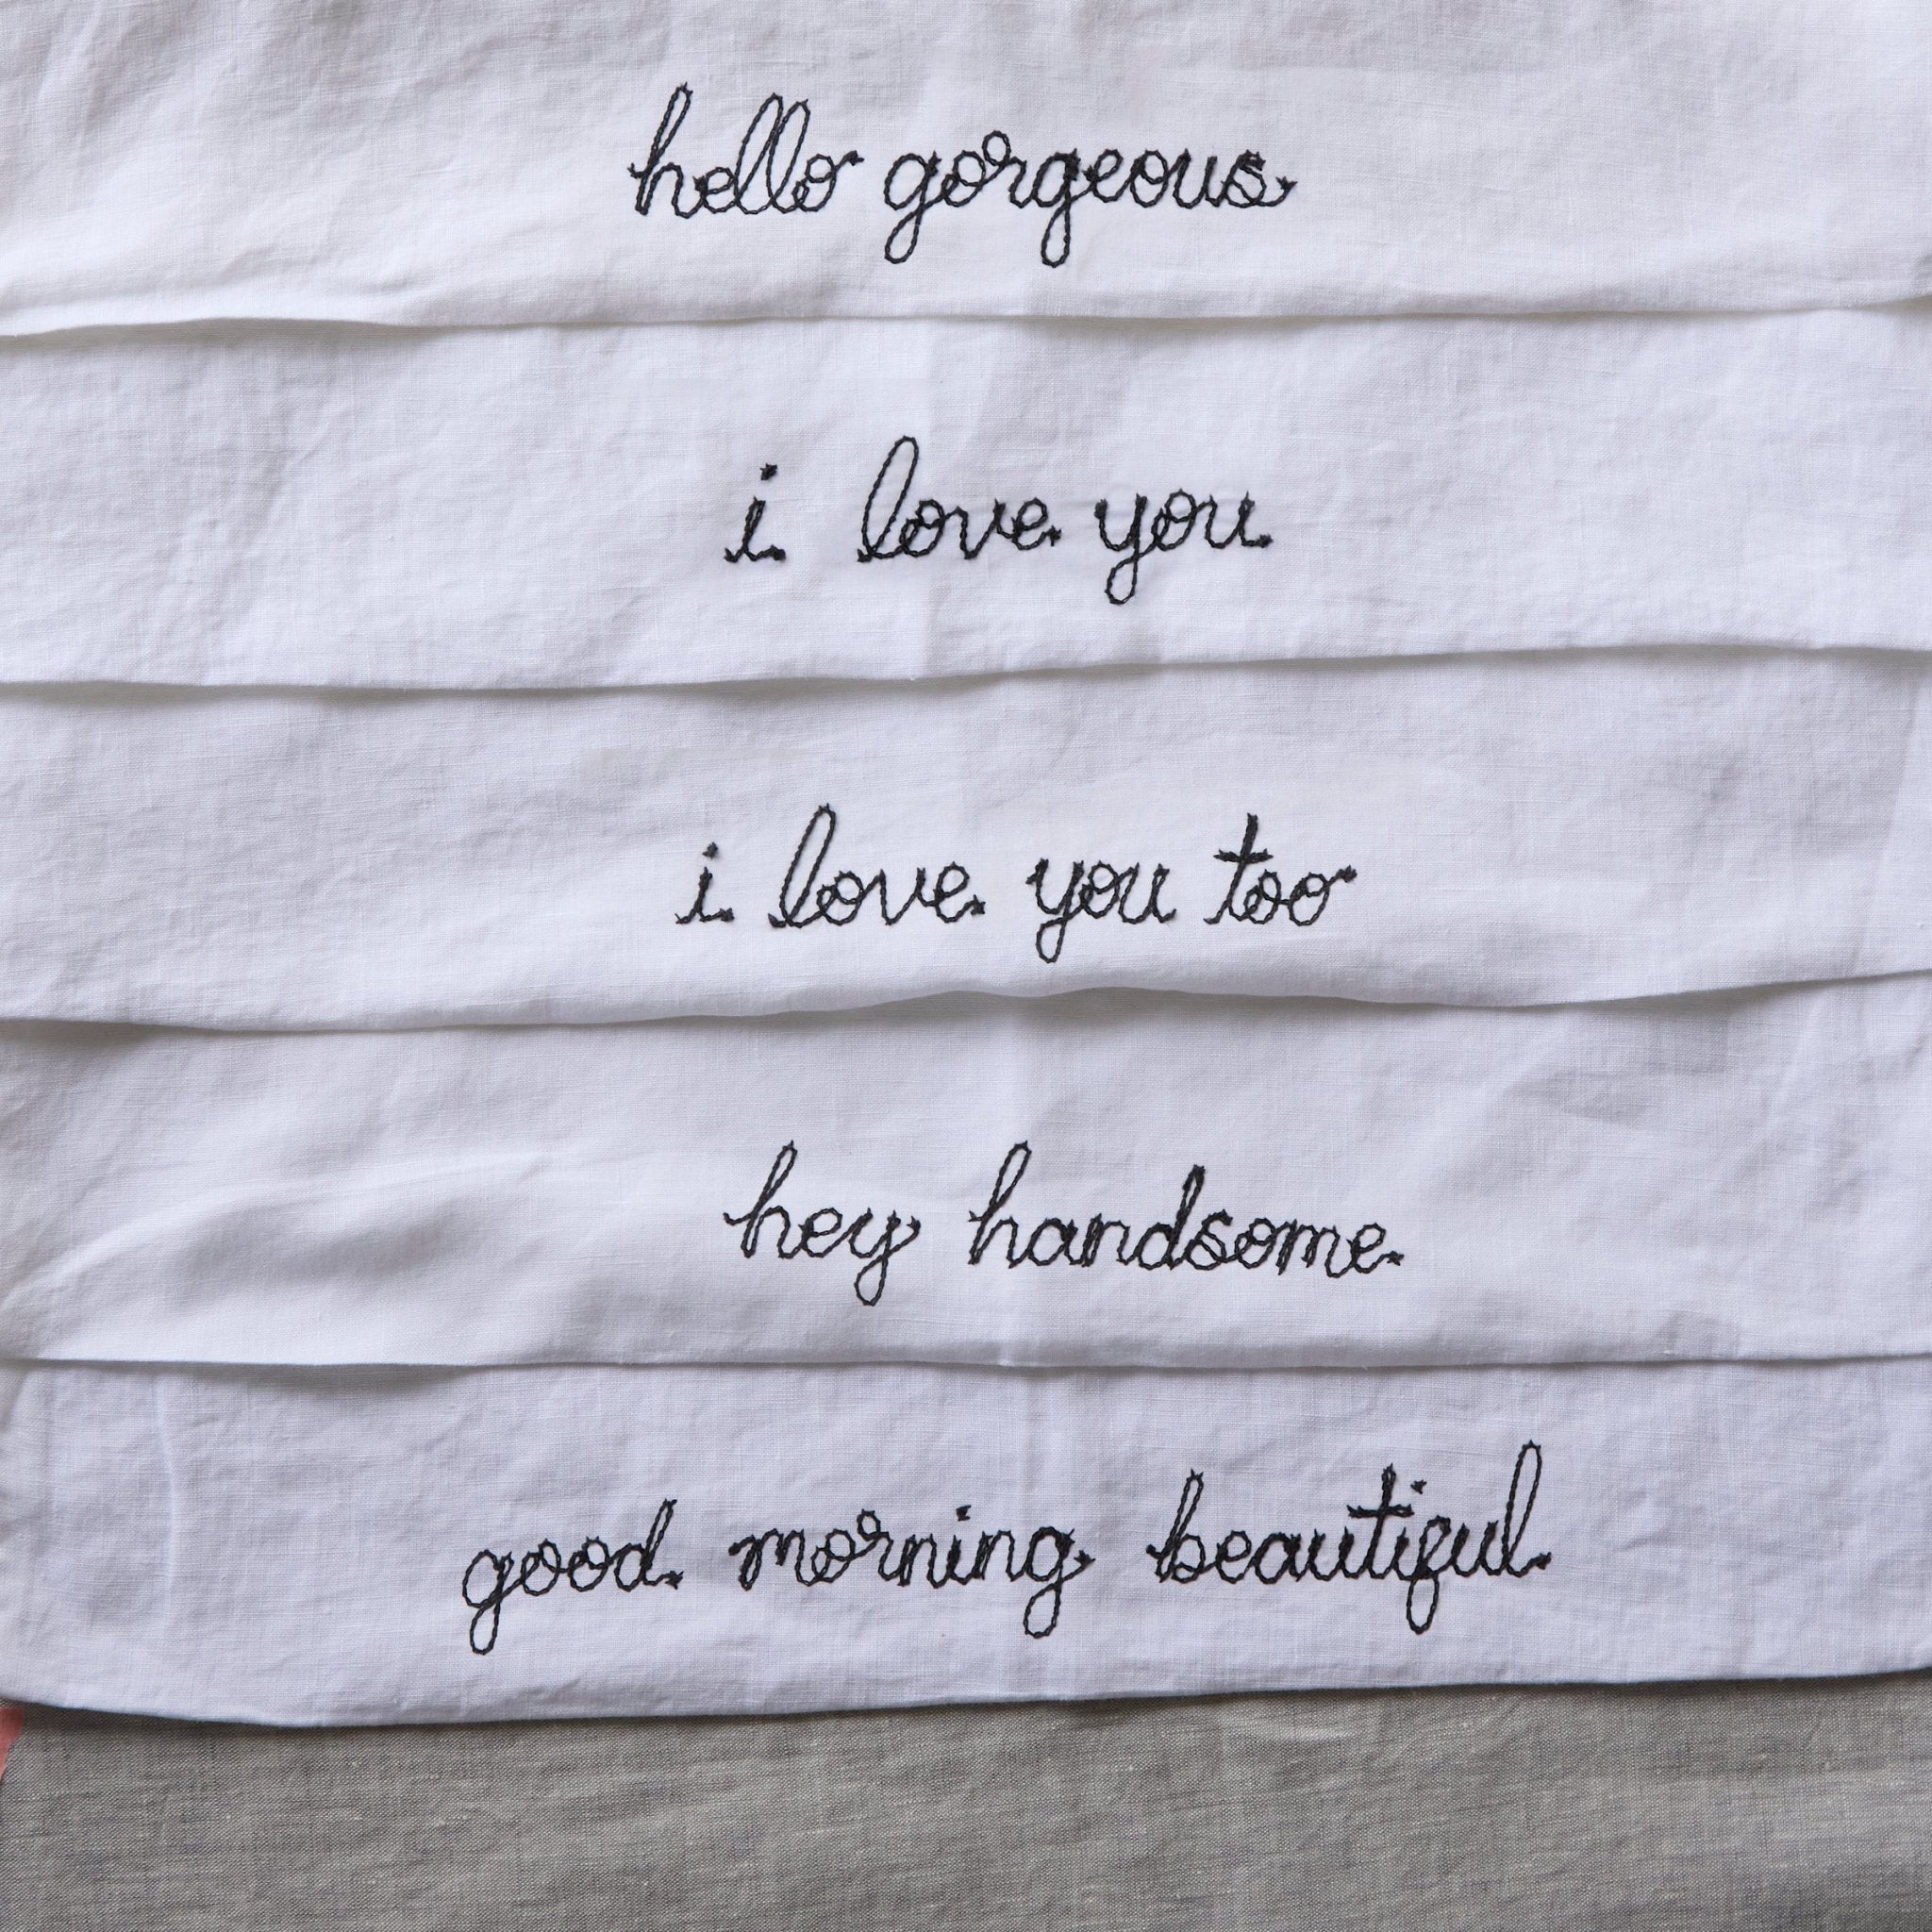 hello gorgeous
i love you
i love you too
hey handsome
good morning beautiful